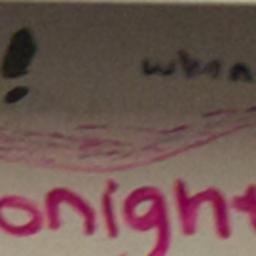 ! when
onight